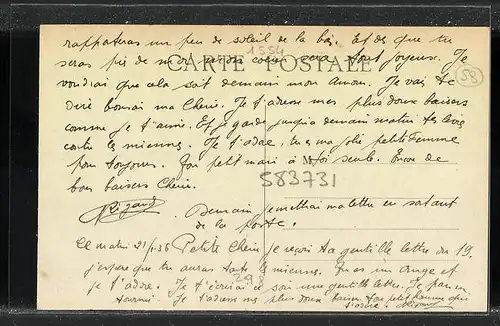 rapporteras un peu de soleil de la bas. Et dès que tu
seras près de moi mon coeur sera tout joyeux. Je
1554
CARTE POSTALE
58
voudrai que cela soit demain mon Amour. Je vais te
dire bonsoir ma Chérie. Je t'adresse mes plus doux baisers
comme je t'aime. Et je garde jusqu'a demain matin tes lèvres
contre les miennes. Je t'adore. tu es ma jolie petite Femme
pour toujours. Ton petit mari à Toi seule. Encore de
bons baisers Chérie.
583731
Demain je mettrai ma lettre en sortant
de la porte.
Ce matin 21/1-36 Petite Chérie je reçois ta gentille lettre du 19.
j'espère que tu auras toute les miennes. Tu es un Ange et
29
je t'adore. Je t'écrirai ce soir une gentille lettre. Je pars en
tournée. Je t'adresse mes plus doux baisers. Ton petit homme qui
t'adore.